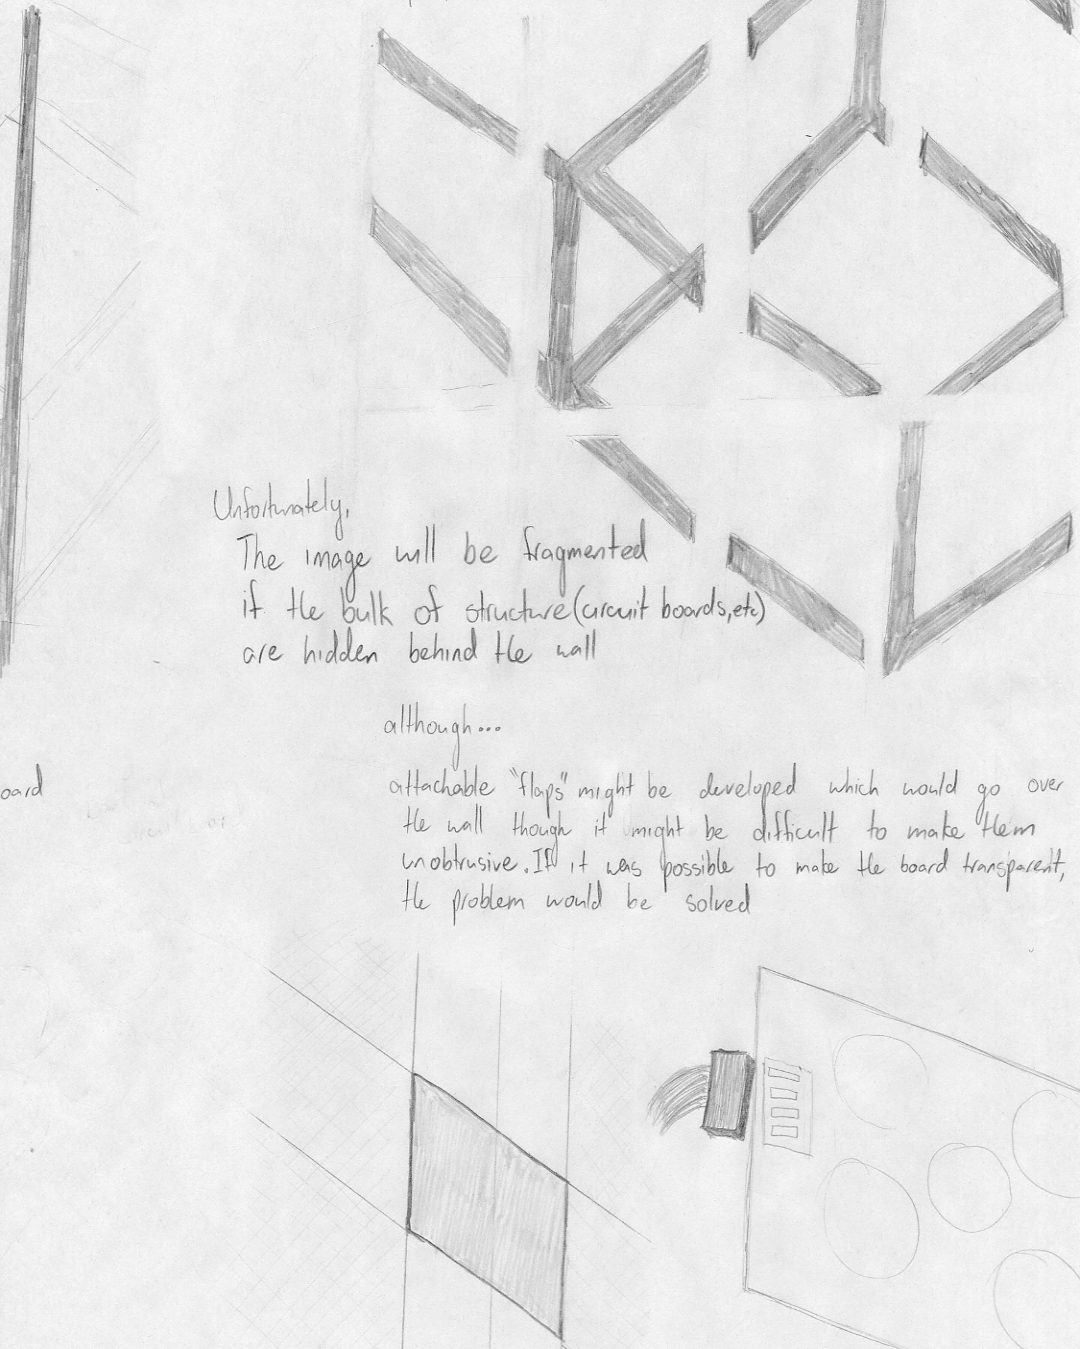 Unfortunately,
The image will be fragmented
if the bulk of structure(circuit boards,etc)
are hidden behind the wall
although...
oard
attachable "flaps" might be developed which would go over
the wall though it might be difficult to make them
unobtrusive. If it was possible to make the board transparent,
the problem would be solved